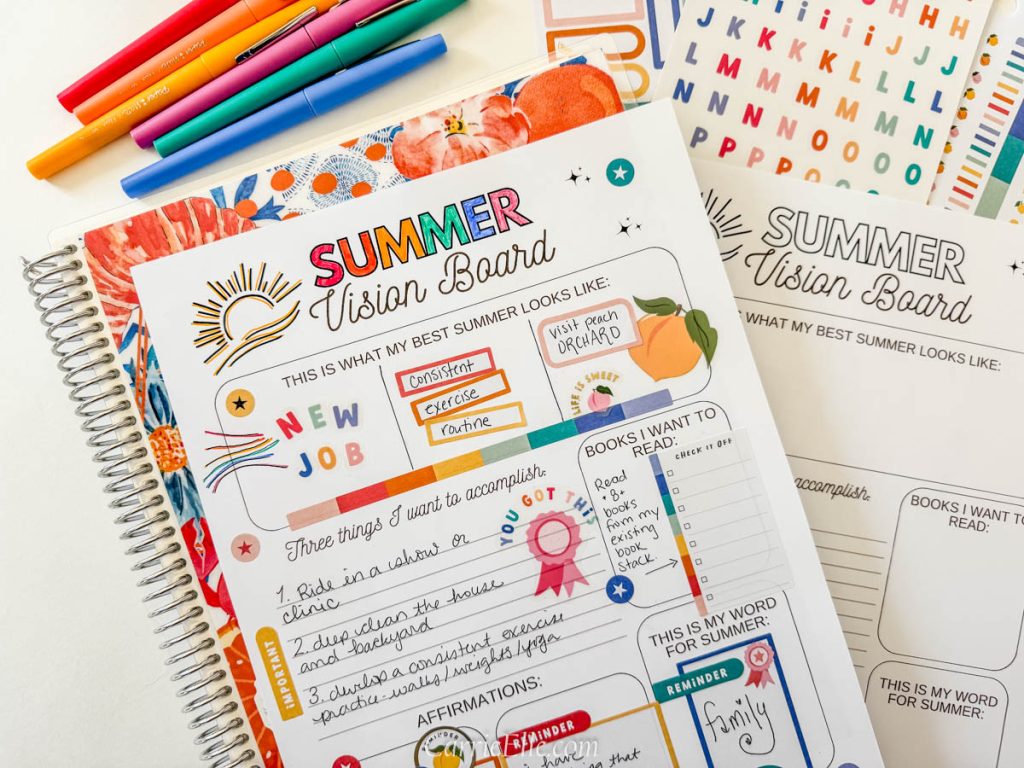 SUMMER
Vision Board
THIS IS WHAT MY BEST SUMMER LOOKS LIKE:
NEW
JOB
consistent
exercise
routine
visit peach
ORCHARD
LIFE IS SWEET
Three things I want to accomplish:
YOU GOT THIS
1. Ride in a show or
clinic
2. deep clean the house
and backyard
3. develop a consistent exercise
practice-walks/weights/yoga
IMPORTANT
BOOKS I WANT TO
READ:
CHECK IT OFF
Read
+8+
books
from my
existing
book
stack
THIS IS MY WORD
FOR SUMMER:
REMINDER
family
AFFIRMATIONS:
REMINDER
I have
CarrieElle.com
SUMMER
Vision Board
WHAT MY BEST SUMMER LOOKS LIKE:
accomplish:
BOOKS I WANT TO
READ:
THIS IS MY WORD
FOR SUMMER:
H H H
J i i i i J J
K K K K L L L
M M M M M M
N N N N O O O N
P P P P O O O